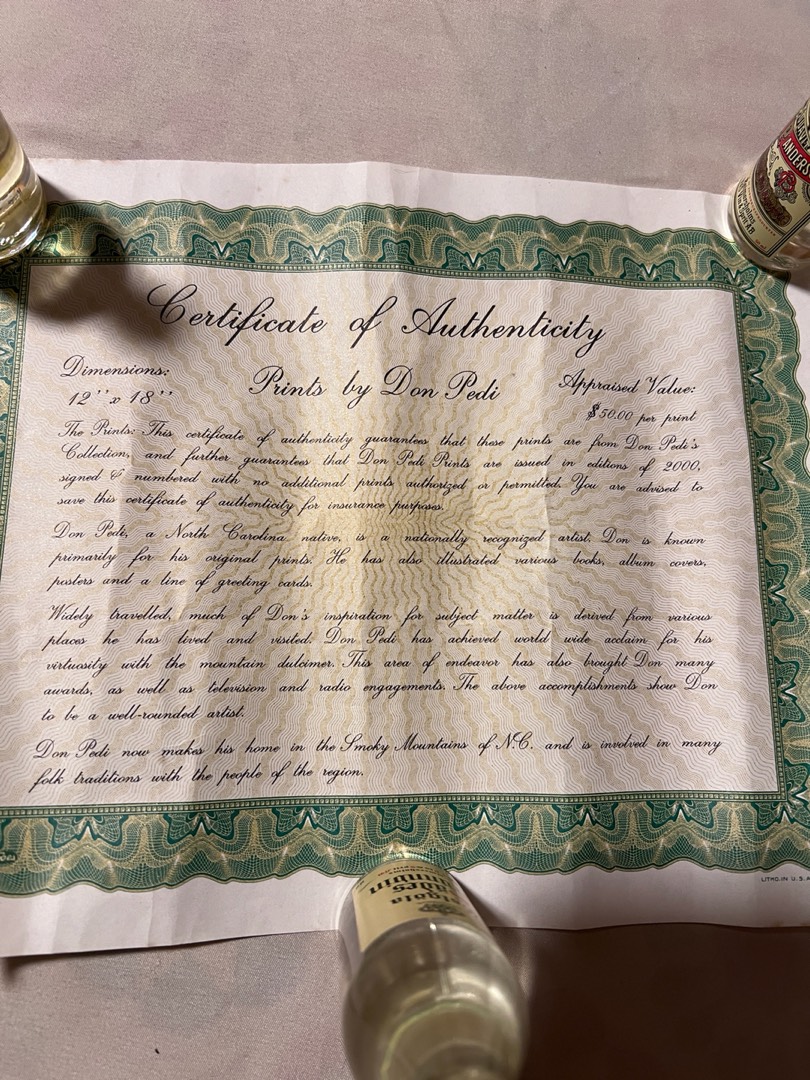 ANDERS
Certificate of Authenticity
Dimensions:
12" x 18"
Prints by Don Pedi
Appraised Value:
$50.00 per print
The Prints: This certificate of authenticity guarantees that these prints are from Don Pedi's
Collection, and further guarantees that Don Pedi Prints are issued in editions of 2000,
signed & numbered with no additional prints authorized or permitted. You are advised to
save this certificate of authenticity for insurance purposes.
Don Pedi, a North Carolina native, is a nationally recognized artist. Don is known
primarily for his original prints. He has also illustrated various books, album covers,
posters and a line of greeting cards.
Widely travelled, much of Don's inspiration for subject matter is derived from various
places he has lived and visited. Don Pedi has achieved world wide acclaim for his
virtuosity with the mountain dulcimer. This area of endeavor has also brought Don many
awards, as well as television and radio engagements. The above accomplishments show Don
to be a well-rounded artist.
Don Pedi now makes his home in the Smoky Mountains of N.C. and is involved in many
folk traditions with the people of the region.
LITHO. IN U.S.A